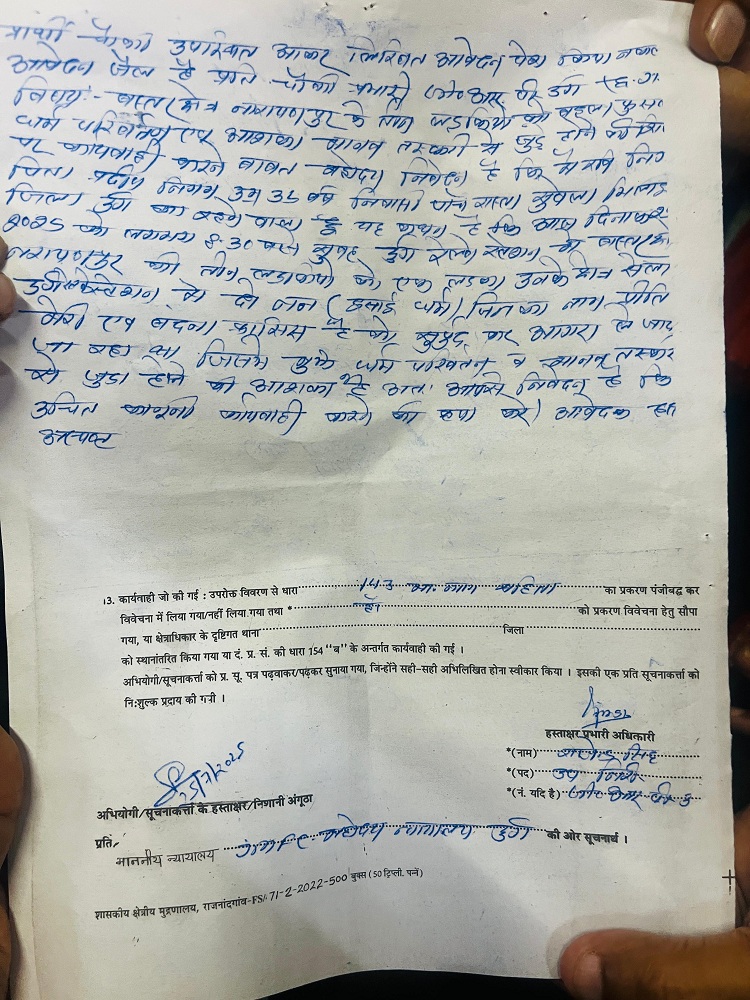 प्रार्थी चौकी उपस्थित आकर लिखित आवेदन पेश किया नकल
आवेदन जैल है प्रति चौकी प्रभारी जी०आर०पी दुर्ग छ.ग.
विषय:- बस्तर क्षेत्र नारायणपुर के तीन लडकियों को बहला फुसला
धर्म परिवर्तन एवं आशंका मानव तस्करी से जुडे होने की
पर कार्यवाही करने बाबत महोदय निवेदन है कि मै रवि निगम
पिता प्रदीप निगम उम्र 36 वर्ष निवासी पांच रास्ता सुपेला भिलाई
जिला दुर्ग का रहने वाला हूं यह कथन है कि आज दिनांक
2025 को लगभग 8.30 बजे सुबह दुर्ग रेल्वे स्टेशन में बस्तर
नारायणपुर की तीन लडकियो को एक लडका उनके साथ
दुर्ग स्टेशन से दो नन (इसाई धर्म) जिनका नाम प्रीति
मेरी एवं वंदना फ्रांसिस है को सुपुर्द कर आगरा ले जाया
जा रहा था जिसमे मुझे धर्म परिवर्तन व मानव तस्करी
से जुडा होने की आशंका है अतः आपसे निवेदन है कि
उचित कानूनी कार्यवाही करने की कृपा करें। आवेदक
अस्पष्ट
13. कार्यवाही जो की गई : उपरोक्त विवरण से धारा 143 भा. न्याय संहिता का प्रकरण पंजीबद्ध कर
विवेचना में लिया गया/नहीं लिया गया तथा * हाँ को प्रकरण विवेचना हेतु सौपा
गया, या क्षेत्राधिकार के दृष्टिगत थाना जिला
को स्थानांतरित किया गया या दं. प्र. सं. की धारा 154 "ब" के अन्तर्गत कार्यवाही की गई ।
अभियोगी/सूचनाकर्त्ता को प्र. सू. पत्र पढ़वाकर/पढ़कर सुनाया गया, जिन्होंने सही-सही अभिलिखित होना स्वीकार किया । इसकी एक प्रति सूचनाकर्त्ता को
नि:शुल्क प्रदाय की गयी ।
हस्ताक्षर प्रभारी अधिकारी
*(नाम) सिंह
*(पद) उप निरी
*(नं. यदि है) जी०आर०पी
अभियोगी/सूचनाकर्त्ता के हस्ताक्षर/निशानी अंगूठा
प्रति,
माननीय न्यायालय महोदय न्यायालय दुर्ग की ओर सूचनार्थ ।
शासकीय क्षेत्रीय मुद्रणालय, राजनांदगांव-FS/-71-2-2022-500 बुक्स (50 ट्रिप्ली. पन्ने)